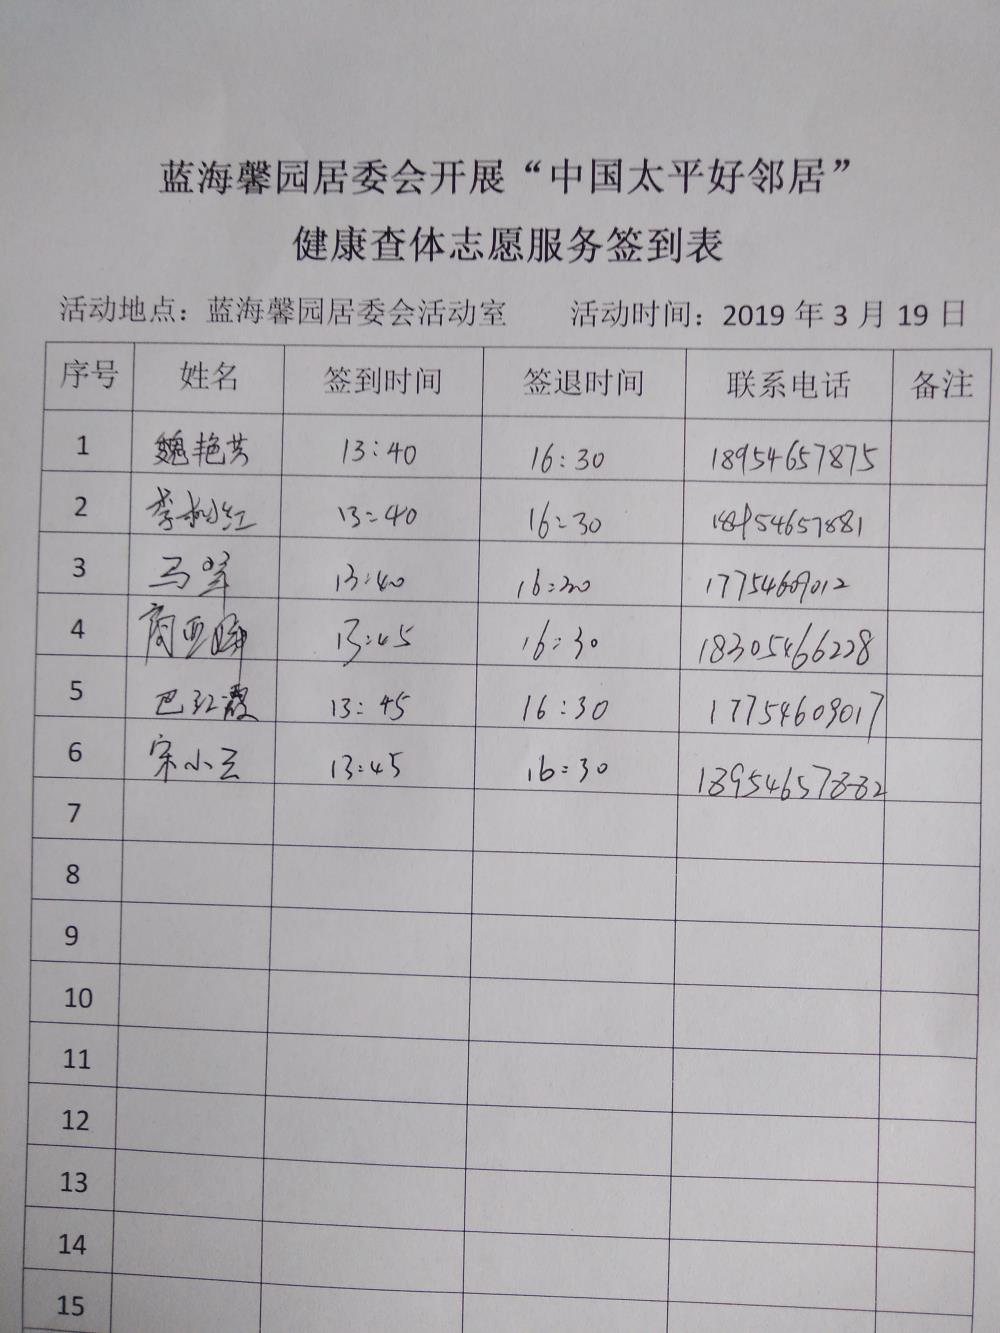 蓝海馨园居委会开展“中国太平好邻居”
健康查体志愿服务签到表
活动地点：蓝海馨园居委会活动室 活动时间：2019年3月19日
序号 姓名 签到时间 签退时间 联系电话 备注
1 魏艳芸 13:40 16:30 18954657875
2 李利红 13:40 16:30 18954657881
3 马 13:40 16:30 17754609012
4 商亚婷 13:45 16:30 18305466228
5 巴红霞 13:45 16:30 17754609017
6 宋小云 13:45 16:30 18954657882
7
8
9
10
11
12
13
14
15